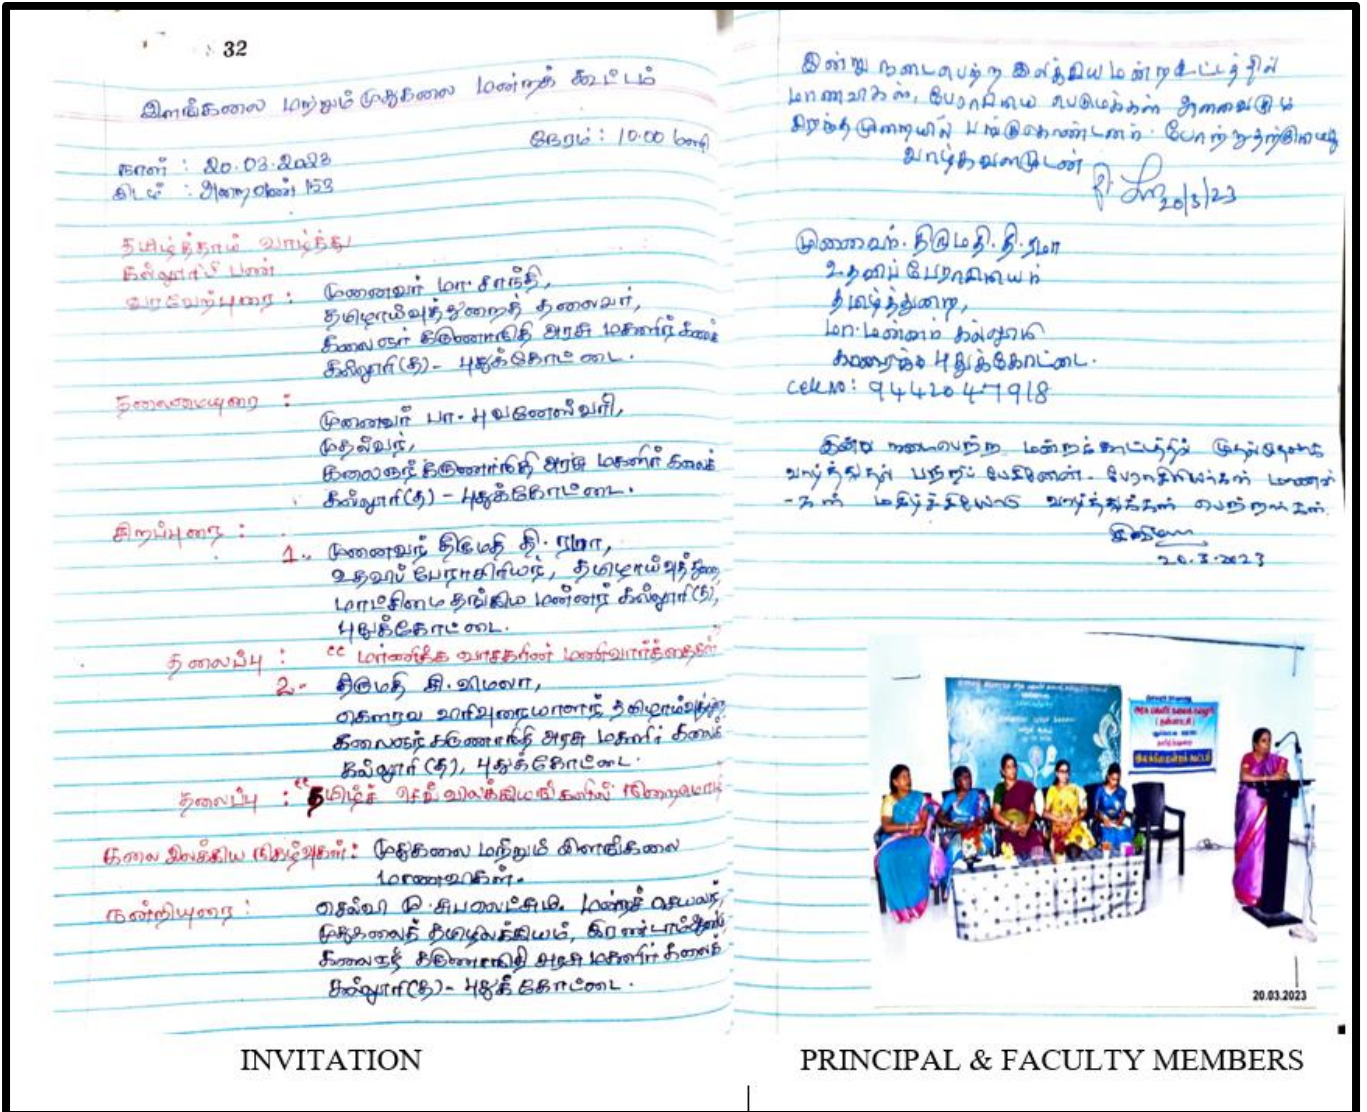 32
இளங்கலை மற்றும் முதுகலை மன்றக் கூட்டம்
நேரம் : 10.00 மணி
நாள் : 20.03.2023
இடம் : அறை எண் 153
தமிழ்த்தாய் வாழ்த்து
கல்லூரிப் பண்
வரவேற்புரை : முனைவர் மா. சாந்தி,
தமிழாய்வுத்துறைத் தலைவர்,
கலைஞர் கருணாநிதி அரசு மகளிர் கலைக்
கல்லூரி(த) - புதுக்கோட்டை.
தலைமையுரை :
முனைவர் பா. புவனேஸ்வரி,
முதல்வர்,
கலைஞர் கருணாநிதி அரசு மகளிர் கலைக்
கல்லூரி(த) - புதுக்கோட்டை.
சிறப்புரை :
1. முனைவர் திருமதி தி. ரமா,
உதவிப் பேராசிரியர், தமிழாய்வுத்துறை
மாட்சிமை தங்கிய மன்னர் கல்லூரி(த),
புதுக்கோட்டை.
தலைப்பு : "மாணிக்க வாசகரின் மணிவார்த்தைகள்
2. திருமதி சி. விமலா,
கௌரவ விரிவுரையாளர் தமிழாய்வுத்துறை
கலைஞர் கருணாநிதி அரசு மகளிர் கலைக்
கல்லூரி (த), புதுக்கோட்டை.
தலைப்பு : "தமிழ்ச் செவ்விலக்கியங்களில்
கலை இலக்கிய நிகழ்வுகள் : முதுகலை மற்றும் இளங்கலை
மாணவிகள்.
நன்றியுரை : செல்வி மு. சுபலெட்சுமி. மன்றச் செயலர்,
முதுகலைத் தமிழிலக்கியம், இரண்டாம் ஆண்டு
கலைஞர் கருணாநிதி அரசு மகளிர் கலைக்
கல்லூரி(த) - புதுக்கோட்டை.
இன்று நடைபெற்ற இலக்கிய மன்ற கூட்டத்தில்
மாணவிகள், பேராசிரிய பெருமக்கள் அனைவரும்
சிறந்த முறையில் பங்குகொண்டனர். போற்றுதற்குரியது
வாழ்க வளமுடன்
20/3/23
முனைவர். திருமதி. தி. ரமா
உதவிப் பேராசிரியர்
தமிழ்த்துறை,
மா. மன்னர் கல்லூரி
புதுக்கோட்டை.
Cell No: 9442047918
இன்று நடைபெற்ற மன்றக் கூட்டத்தில்
வாழ்த்துகள் பற்றிப் பேசினேன். பேராசிரியர்கள் மாணவி
-கள் மகிழ்ச்சியோடு வாழ்த்துக்கள் பெற்றார்கள்.
20.3.2023
அரசு மகளிர் கலைக் கல்லூரி
(தன்னாட்சி)
இலக்கிய மன்றக் கூட்டம்
20.03.2023
INVITATION
PRINCIPAL & FACULTY MEMBERS